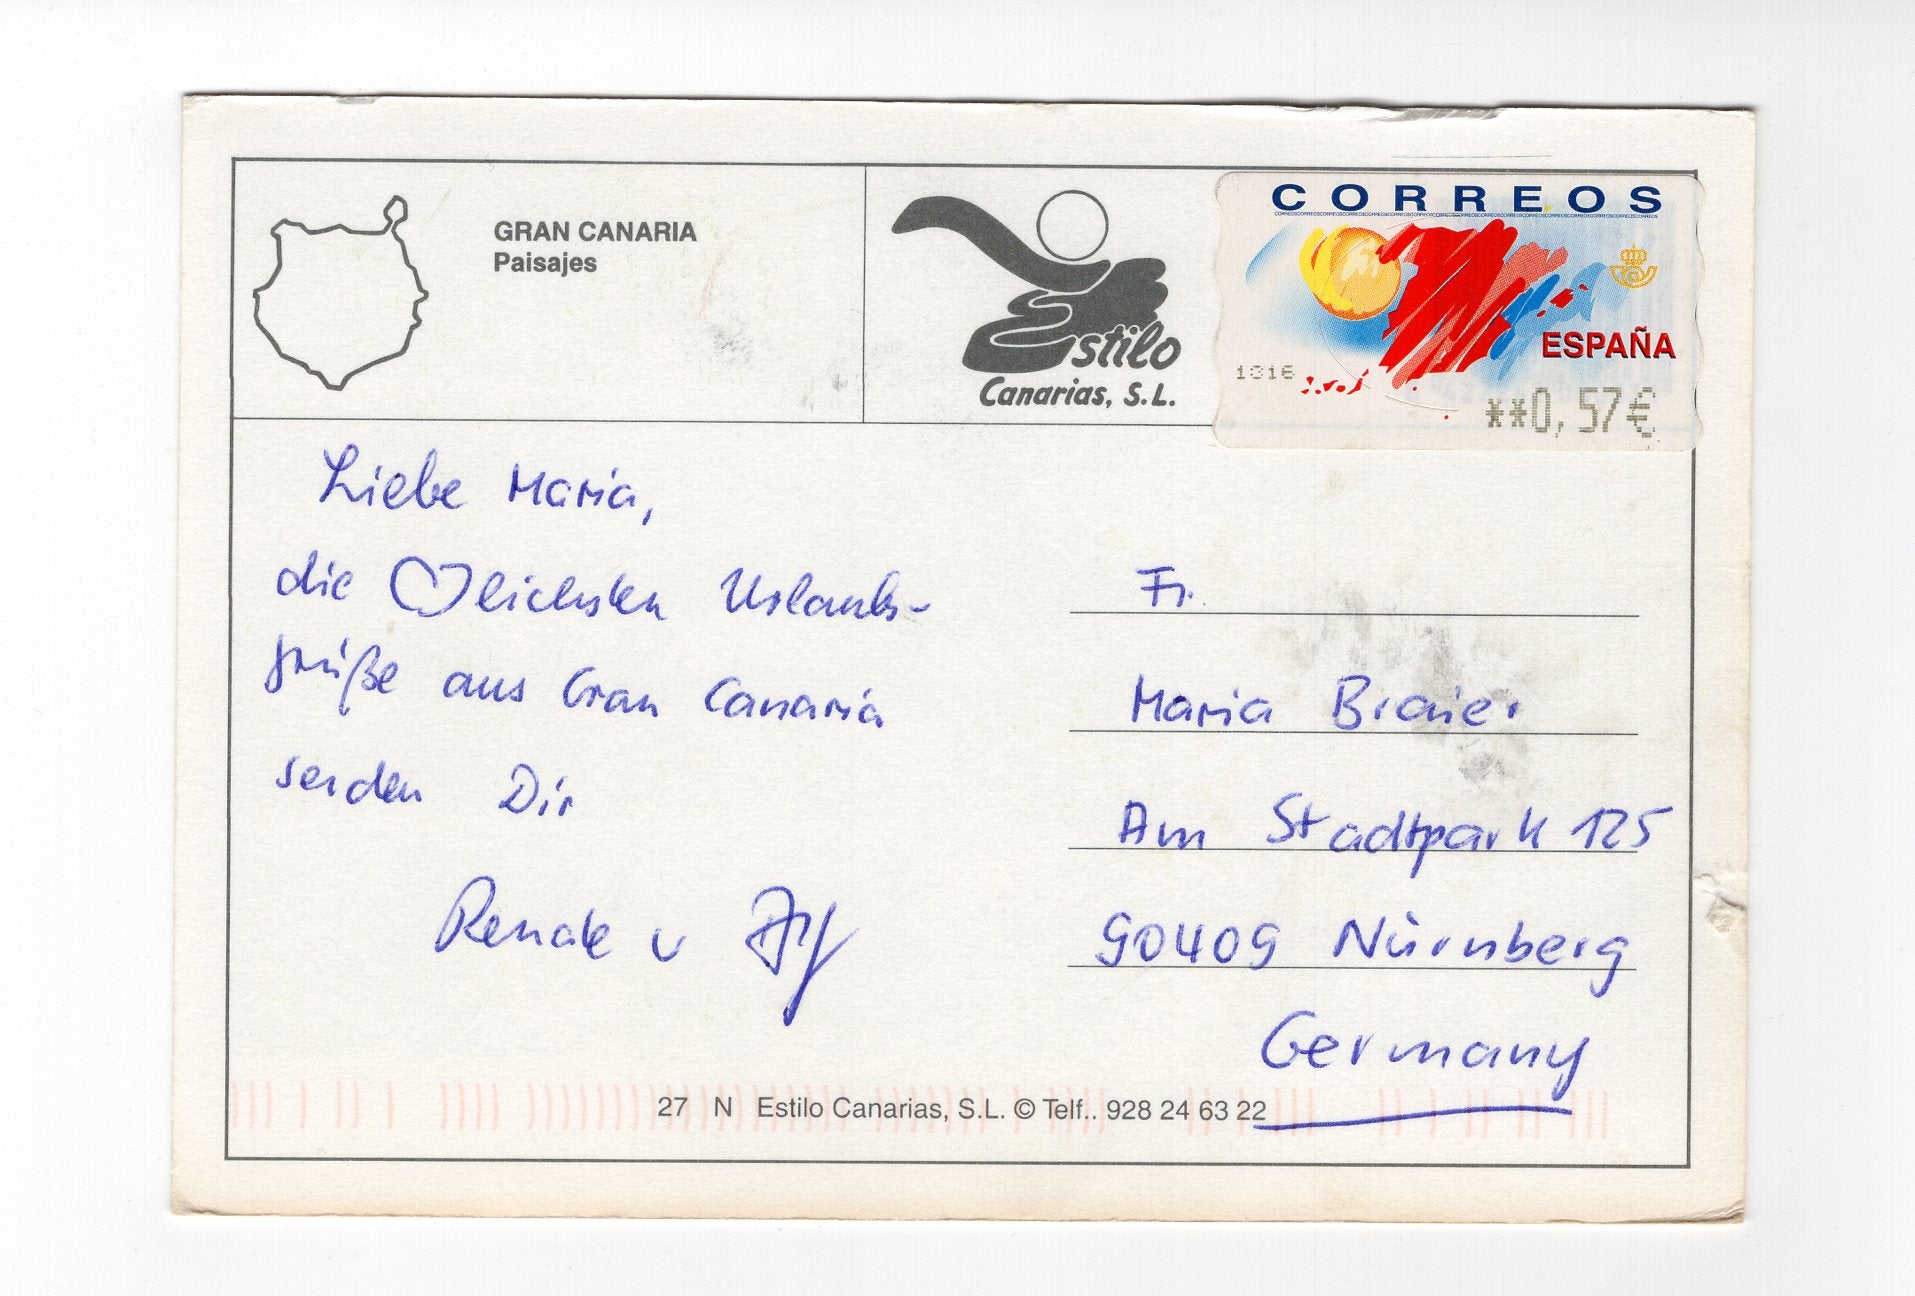 GRAN CANARIA
Paisajes
Estilo
Canarias, S.L.
CORREOS
ESPAÑA
1816
**0,57€
Liebe Maria,
die ♡lichsten Urlaubs-
grüße aus Gran Canaria
senden Dir
Renate u
Fr.
Maria
Am Stadtpark 125
90409 Nürnberg
Germany
27 N Estilo Canarias, S.L. © Telf.. 928 24 63 22